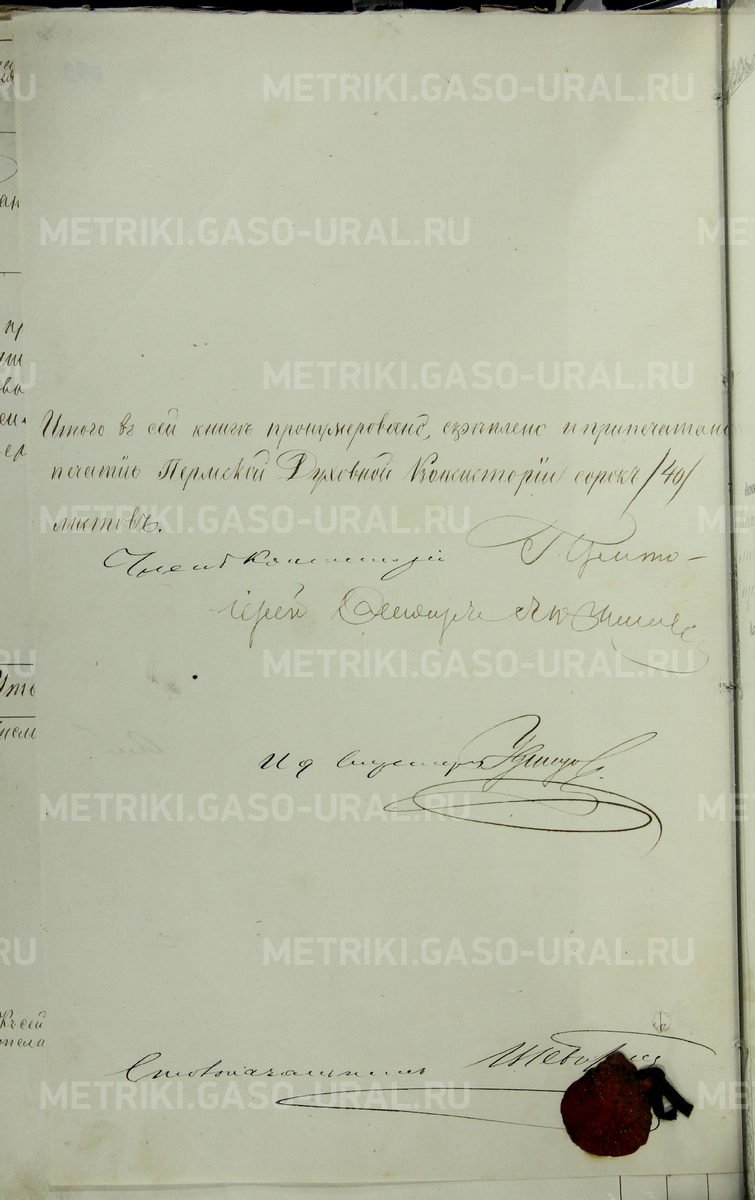 METRIKI.GASO-URAL.RU
METRIKI.GASO-URAL.RU
METRIKI.GASO-URAL.RU
Итого въ сей книгѣ пронумеровано, скрѣплено и припечатано
печатью Пермской Духовной Консисторіи сорокъ /40/
METRIKI.GASO-URAL.RU
листовъ.
Членъ Консисторіи Прото-
іерей Александръ
METRIKI.GASO-URAL.RU
И д Секретаря
METRIKI.GASO-URAL.RU
METRIKI.GASO-URAL.RU
Къ сей
Столоначальникъ
METRIKI.GASO-URAL.RU